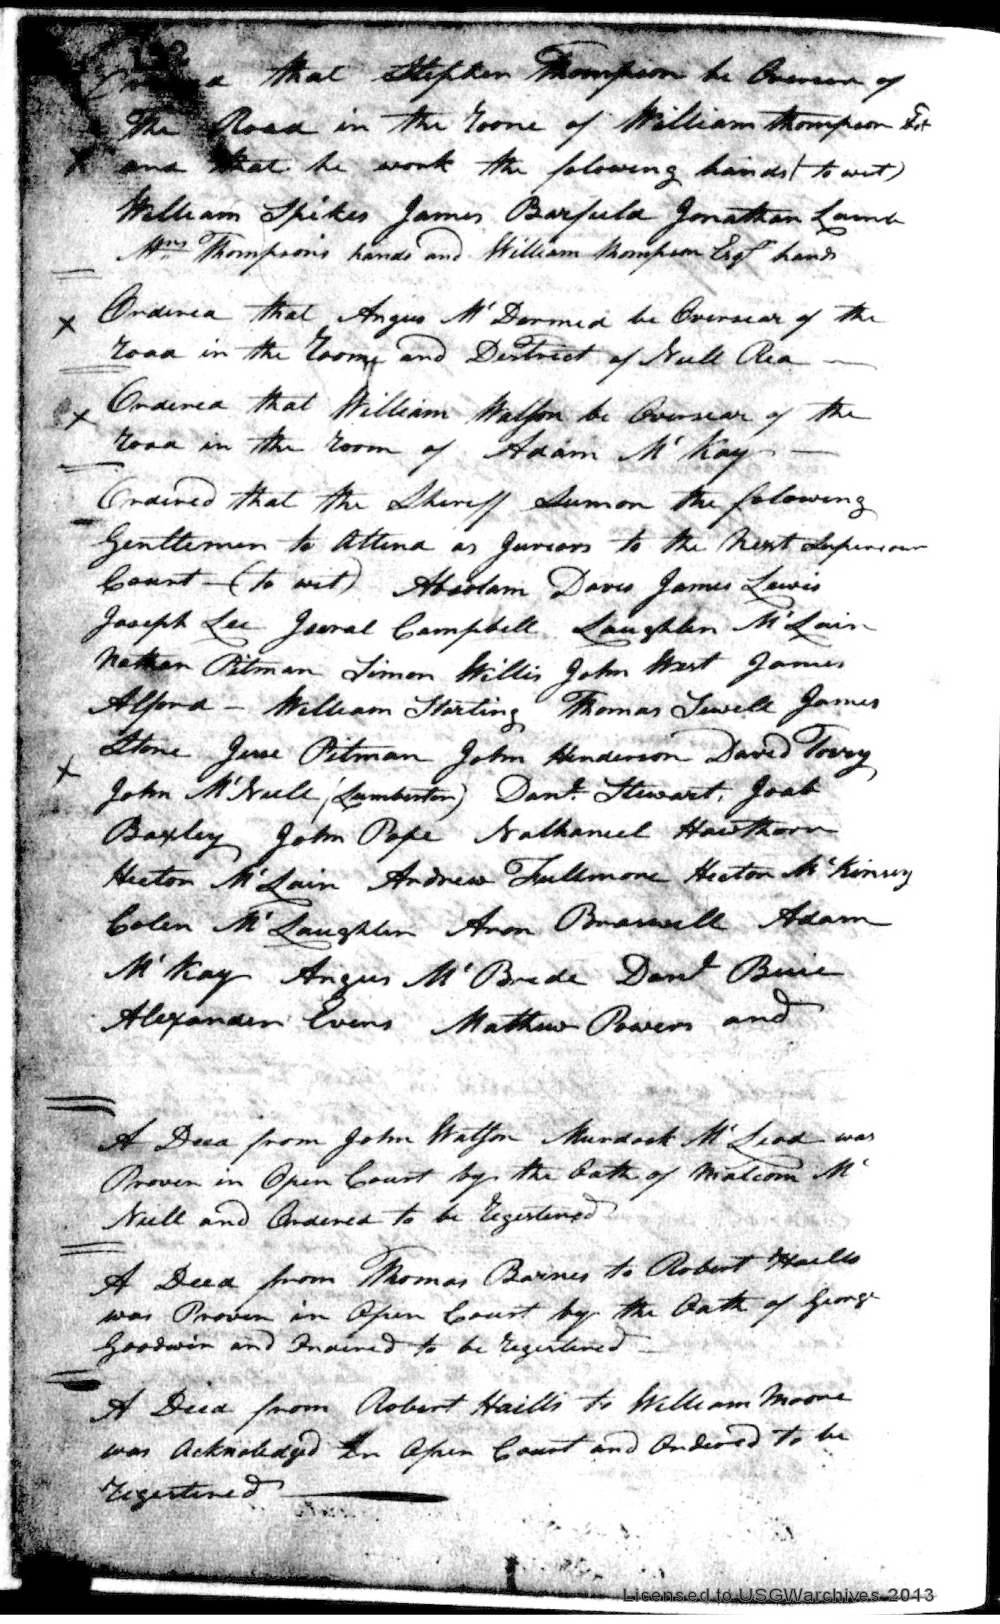 132
Ordered that Stephen Thompson be Oversear of
the Road in the roone of William thompson Esq
and that he work the folowing hands (to wit)
William Spikes James Barfield Jonathan Lamb
Mrs Thompson's hands and William thompson Esqr hands
Ordered that Angus Mc Dermed be Oversear of the
road in the Room and District of Neill Rea
Ordered that William Watson be Oversear of the
road in the room of Adam Mc Kay
Ordered that the Sheriff Sumon the folowing
Gentlemen to Attend as Jurors to the Next Superiour
Court (to wit) Absolam Davis James Lewis
Joseph Lee Campbell Laughlin Mc Lain
Nathan Pitman Simon Willis John West James
Alford William Starling Thomas Sewell James
Stone Jesse Pitman John Henderson David Torry
John Mc Neill (Lumberton) Danl Stewart Joab
Baxley John Pope Nathaniel Hawthorn
Hector Mc Lain Andrew Fullmore Hector McKinsey
Colen Mc Laughlin Aron Braswell Adam
Mc Kay Angus Mc Brede Danl Buie
Alexander Evens Mathew Powers and
A Deed from John Watson Murdock Mc Leod was
Proven in Open Court by the Oath of Malcom Mc
Neill and Ordered to be regestered
A Deed from Thomas Barnes to Robert Haills
was Proven in Open Court by the Oath of George
Goodwin and Ordered to be regestered
A Deed from Robert Haills to William Moore
was Acknoledged in Open Court and Ordered to be
regestered
Licensed to USGWarchives 2013